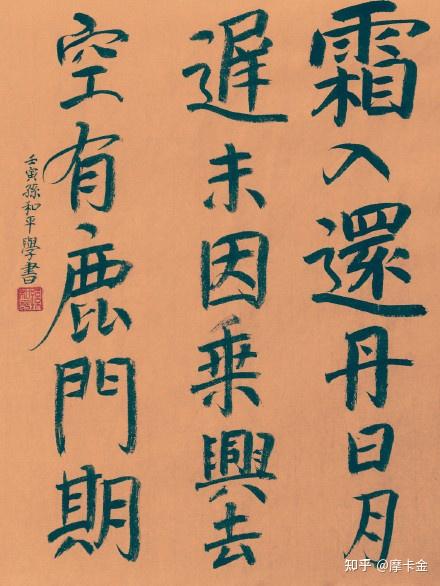 霜入還丹日月
遲未因乗興去
空有鹿門期
壬寅孫和平學書
知乎 @摩卡金